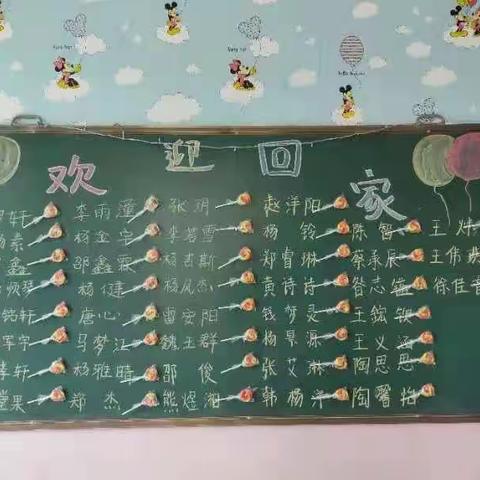 欢迎回家
轩 李雨潼 张玥 赵洋阳
素 杨金宇 李若雪 杨铃 陈智 王
鑫 邵鑫霖 杨吉斯 郑睿琳 蔡承辰 王伟
杨健 杨凤杰 黄诗诗 昝志 徐佳
铭轩 唐心 雷安阳 钱梦灵 王鋐
军宇 马梦江 魏王群 杨昊源 王义涵
轩 杨雅晴 邵俊 张艾琳 陶思思
果 郑杰 熊煜湘 韩杨 陶馨怡